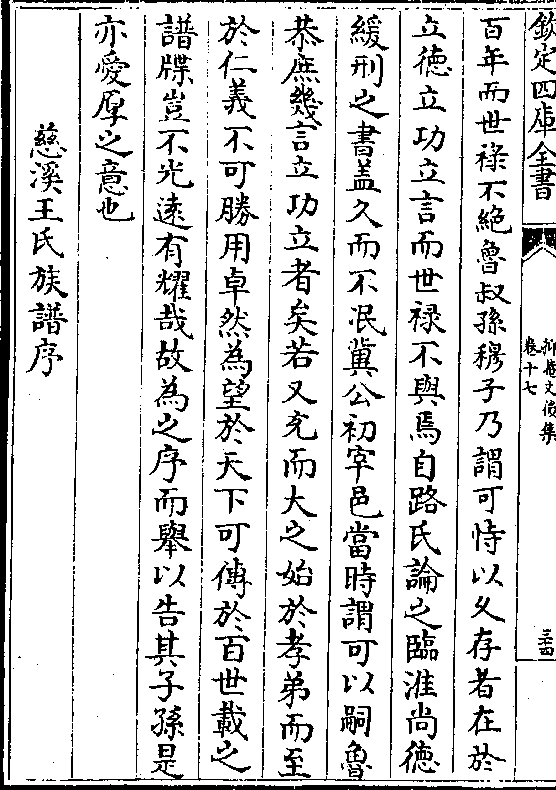 欽定四庫全書
抑菴文後集
卷十七
三四
百年而世祿不絶魯叔孫穆子乃謂可恃以乆存者在於
立德立功立言而世禄不與焉自路氏論之臨淮尚德
緩刑之書盖久而不泯冀公初宰邑當時謂可以嗣魯
恭庶幾言立功立者矣若又充而大之始於孝弟而至
於仁義不可勝用卓然為望於天下可傳於百世載之
譜牒豈不光遠有耀哉故為之序而舉以告其子孫是
亦愛厚之意也
慈溪王氏族譜序